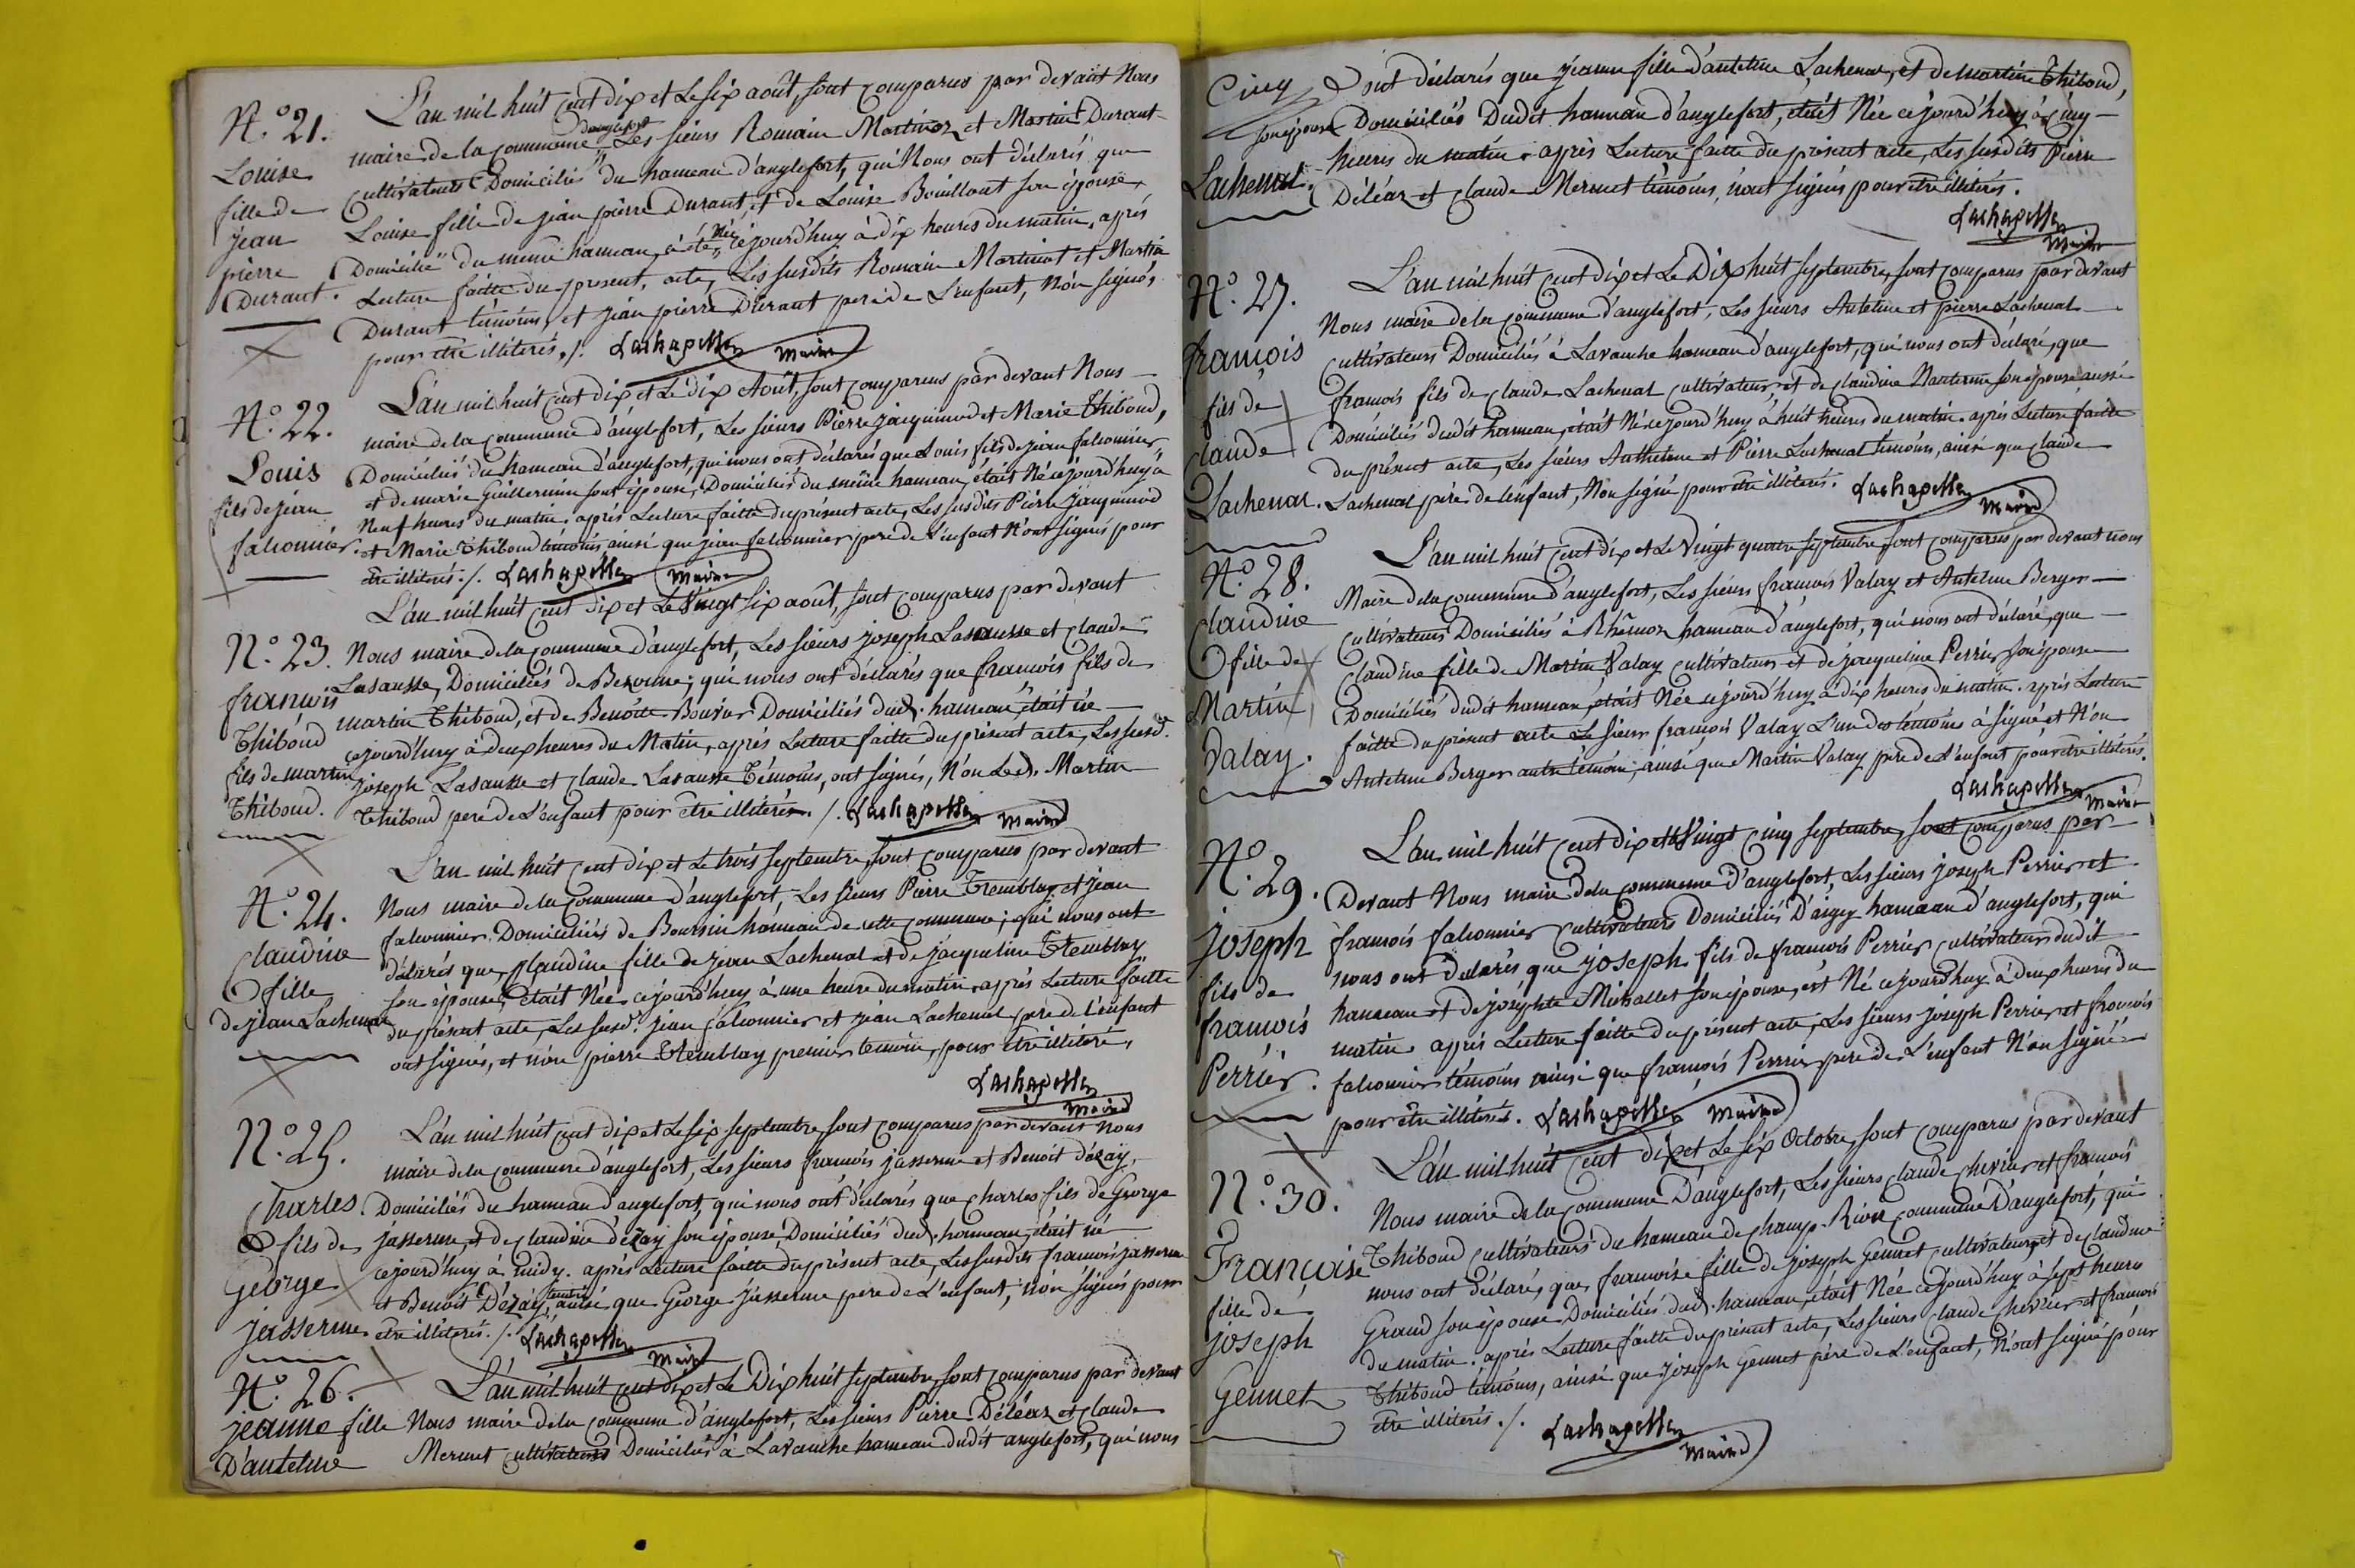 N.º 21.
Louise
fille de
jean
pierre
Durant.
L'an mil huit cent dix et Le six août, sont comparus par devant Nous
maire de la commune d'anglefort Les sieurs Romain Martinoz et Martin Durant
cultivateurs Domiciliés du hameau d'anglefort, qui Nous ont déclarés que
Louise fille de jean pierre Durant, et de Louise Bouillont son épouse,
Domicilié du même hameau, à été Née cejourd'huy à dix heures du matin, après
Lecture faitte du present, acte, Les susdits Romain Martinot et Martin
Durant témoins, et jean pierre Durant pere de L'enfant, Non signés
pour être illiterés ./. Lachapelle maire
N.º 22.
Louis
fils de jean
falconnier.
L'an mil huit cent dix et Le dix Août, sont comparus par devant Nous
maire de la commune d'anglefort, Les sieurs Pierre jacquinod et Marie Thiboud,
Domiciliés du hameau d'anglefort, qui nous ont déclarés que Louis fils de jean falconnier
et de marie Guillermin sont épouse, Domiciliés du même hameau, était Né cejourd'huy à
Neuf heures du matin, après Lecture faitte du présent acte, Les susdits Pierre jacquinod
et Marie Thiboud témoins ainsi que jean falconnier pere de L'enfant N'ont signés pour
être illiterés ./. Lachapelle maire
N.º 23.
francois
Thiboud
fils de martin
Thiboud.
L'an mil huit cent dix et Le Vingt six août, sont comparus par devant
Nous maire de la commune d'anglefort, Les sieurs joseph Lasausse et claude
Lasausse, Domiciliés de Bezonne; qui nous ont déclarés que francois fils de
martin Thiboud, et de Benoite Bouvier Domiciliés dud. hameau, était né
cejourd'huy à deux heures du Matin, après Lecture faitte du présent acte, Les susd.
joseph Lasausse et claude Lasausse Témoins, ont signés, Non Led. Martin
Thiboud pere de L'enfant pour être illiterés. /. Lachapelle maire
N.º 24.
claudine
fille
de jean Lachenal
L'an mil huit cent dix et Le trois septembre, sont comparus par devant
Nous maire de la commune d'anglefort, Les sieurs Pierre Tremblay et jean
falconnier Domiciliés de Boursin hameau de cette commune; qui nous ont
déclarés que, claudine fille de jean Lachenal et de jacqueline Tremblay
son épouse, était Née cejourd'huy à une heure du matin, après Lecture faitte
du présent acte, Les susd. jean falconnier et jean Lachenal pere de L'enfant
ont signés, et non pierre Tremblay premier temoin, pour être illitéré,
Lachapelle
maire
N.º 25.
Charles.
fils de
George
jasserme
L'an mil huit cent dix et Le six septembre sont comparus par devant nous
maire de la commune d'anglefort, Les sieurs francois jasserme et Benoit dézay,
Domiciliés du hameau d'anglefort, qui nous ont déclarés que charles fils de George
jasserme, et de claudine dézay son épouse, Domiciliés dud. hameau, était né
cejourd'huy à midy. après Lecture faitte du présent acte, Les susdits francois jasserme
et Benoit Dézay, temoins ainsi que George jasserme pere de L'enfant, non signés pour
être illiterés. /. Lachapelle
maire
N.º 26.
jeanne fille
D'antelme
L'an mil huit cent dix et Le Dix huit septembre, sont comparus par devant
Nous maire de la commune d'anglefort, Les sieurs Pierre Déléaz et claude
Mermet cultivateurs Domiciliés à Lavanche hameau dudit anglefort, qui nous
Lachenal.
ont déclarés que jeanne fille d'antelme Lachenal, et de martine Thiboud,
son épouse Domiciliés Dudit hameau d'anglefort, était Née cejourd'huy à cinq
heures du matin. après Lecture faitte du présent acte, Les susdits Pierre
Déléaz et claude Mermet témoins, n'ont signés pour être illiterés.
Lachapelle
maire
N.º 27.
francois
fils de
claude
Lachenal.
L'an mil huit cent dix et Le Dix huit septembre, sont comparus par devant
Nous maire de la commune d'anglefort, Les sieurs Antelme et pierre Lachenal
cultivateurs Domiciliés à Lavanche hameau d'anglefort, qui nous ont déclaré, que
francois fils de claude Lachenal cultivateur, et de claudine Nanterme son épouse aussi
Domiciliés dudit hameau, était Né cejourd'huy à huit heures du matin. après Lecture faitte
du présent acte, Les sieurs Anthelme et Pierre Lachenal témoins, ainsi que claude
Lachenal père de l'enfant, Non signé pour être illiterés. Lachapelle
maire
N.º 28.
claudine
fille de
Martin
Valay.
L'an mil huit cent dix et Le Vingt quatre septembre, sont comparus par devant nous
Maire de la commune d'anglefort, Les sieurs francois Valay et Antelme Berger
cultivateurs Domiciliés à Rhémoz hameau d'anglefort, qui nous ont déclaré, que
claudine fille de Martin Valay cultivateur et de jacqueline Perrier son épouse
Domiciliés dudit hameau, était Née cejourd'huy à dix heures du matin. après Lecture
faitte du présent acte Le sieur francois Valay L'un des témoins à signé et Non
Antelme Berger autre témoin, ainsi que Martin Valay père de L'enfant pour être illiterés.
Lachapelle
maire
N.º 29.
joseph
fils de
francois
Perrier.
L'an mil huit cent dix et le Vingt cinq septembre, sont comparus par
Devant Nous maire de la commune d'anglefort, Les sieurs joseph Perrier et
francois falconnier cultivateurs Domiciliés D'aigy hameau d'anglefort, qui
nous ont déclarés que joseph fils de francois Perrier cultivateur dudit
hameau et de joséphte Missallet son épouse, est Né cejourd'huy à deux heures du
matin. après Lecture faitte du présent acte, Les sieurs joseph Perrier et francois
falconnier témoins ainsi que francois Perrier pere de L'enfant N'on signé
pour être illiterés. Lachapelle maire
N.º 30.
Françoise
fille de
joseph
Gennet
L'an mil huit cent dix et Le six Octobre, sont comparus par devant
Nous maire de la commune D'anglefort, Les sieurs claude chevrier et francois
Thiboud cultivateurs du hameau de champ-Rion commune D'anglefort, qui
nous ont déclaré, que francoise fille de joseph Gennet cultivateur, et de claudine
Grand son épouse Domiciliés dud. hameau, était Née cejourd'huy à sept heures
du matin. après Lecture faitte du présent acte, Les sieurs claude chevrier et francois
Thiboud témoins, ainsi que joseph Gennet père de L'enfant, N'ont signé pour
être illiterés ./. Lachapelle
maire